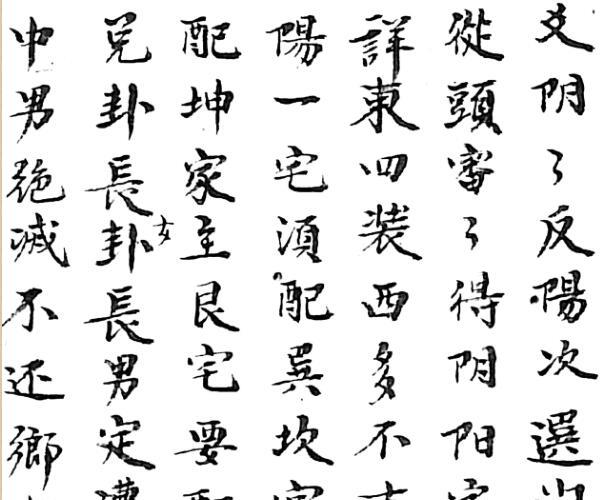 爻阴〻反陽次選
從頭審〻得阴阳
詳東四装西多不
陽一宅須配巽坎
配坤家主艮宅要
兑卦長卦女長男定
中男絶滅不还鄉